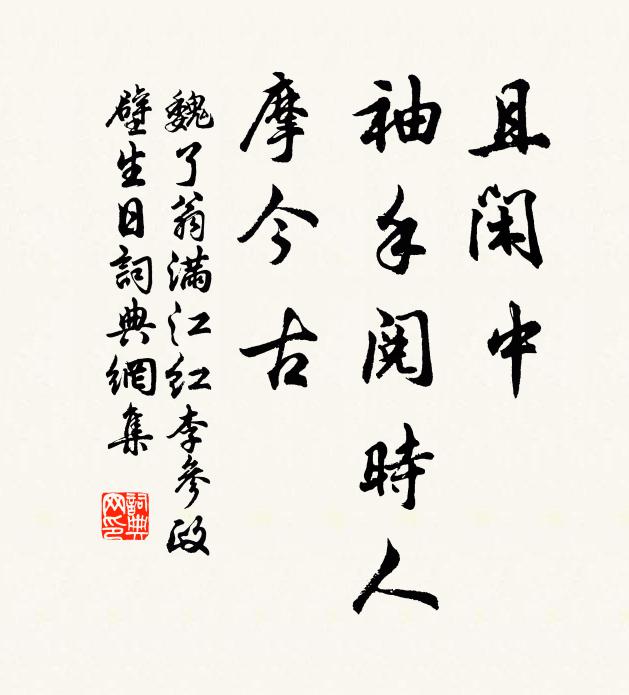 且閑中
袖手閱時人
摩今古
魏了翁滿江红李參政
壁生日詞典網集
詞典
网印